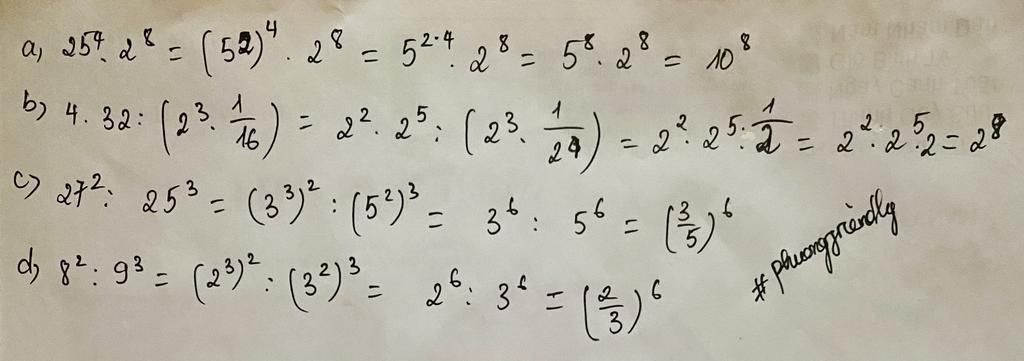 a, 25⁴. 2⁸ = (52)⁴ . 2⁸ = 5²·⁴ . 2⁸ = 5⁸ . 2⁸ = 10⁸
b) 4. 32 : (2³. 1/16) = 2². 2⁵ : (2³. 1/2⁴) = 2² . 2⁵ : 1/2 = 2² . 2⁵. 2 = 2⁸
c) 27² : 25³ = (3³)² : (5²)³ = 3⁶ : 5⁶ = (3/5)⁶
d, 8² : 9³ = (2³)² : (3²)³ = 2⁶ : 3⁶ = (2/3)⁶
# phuongfriendly